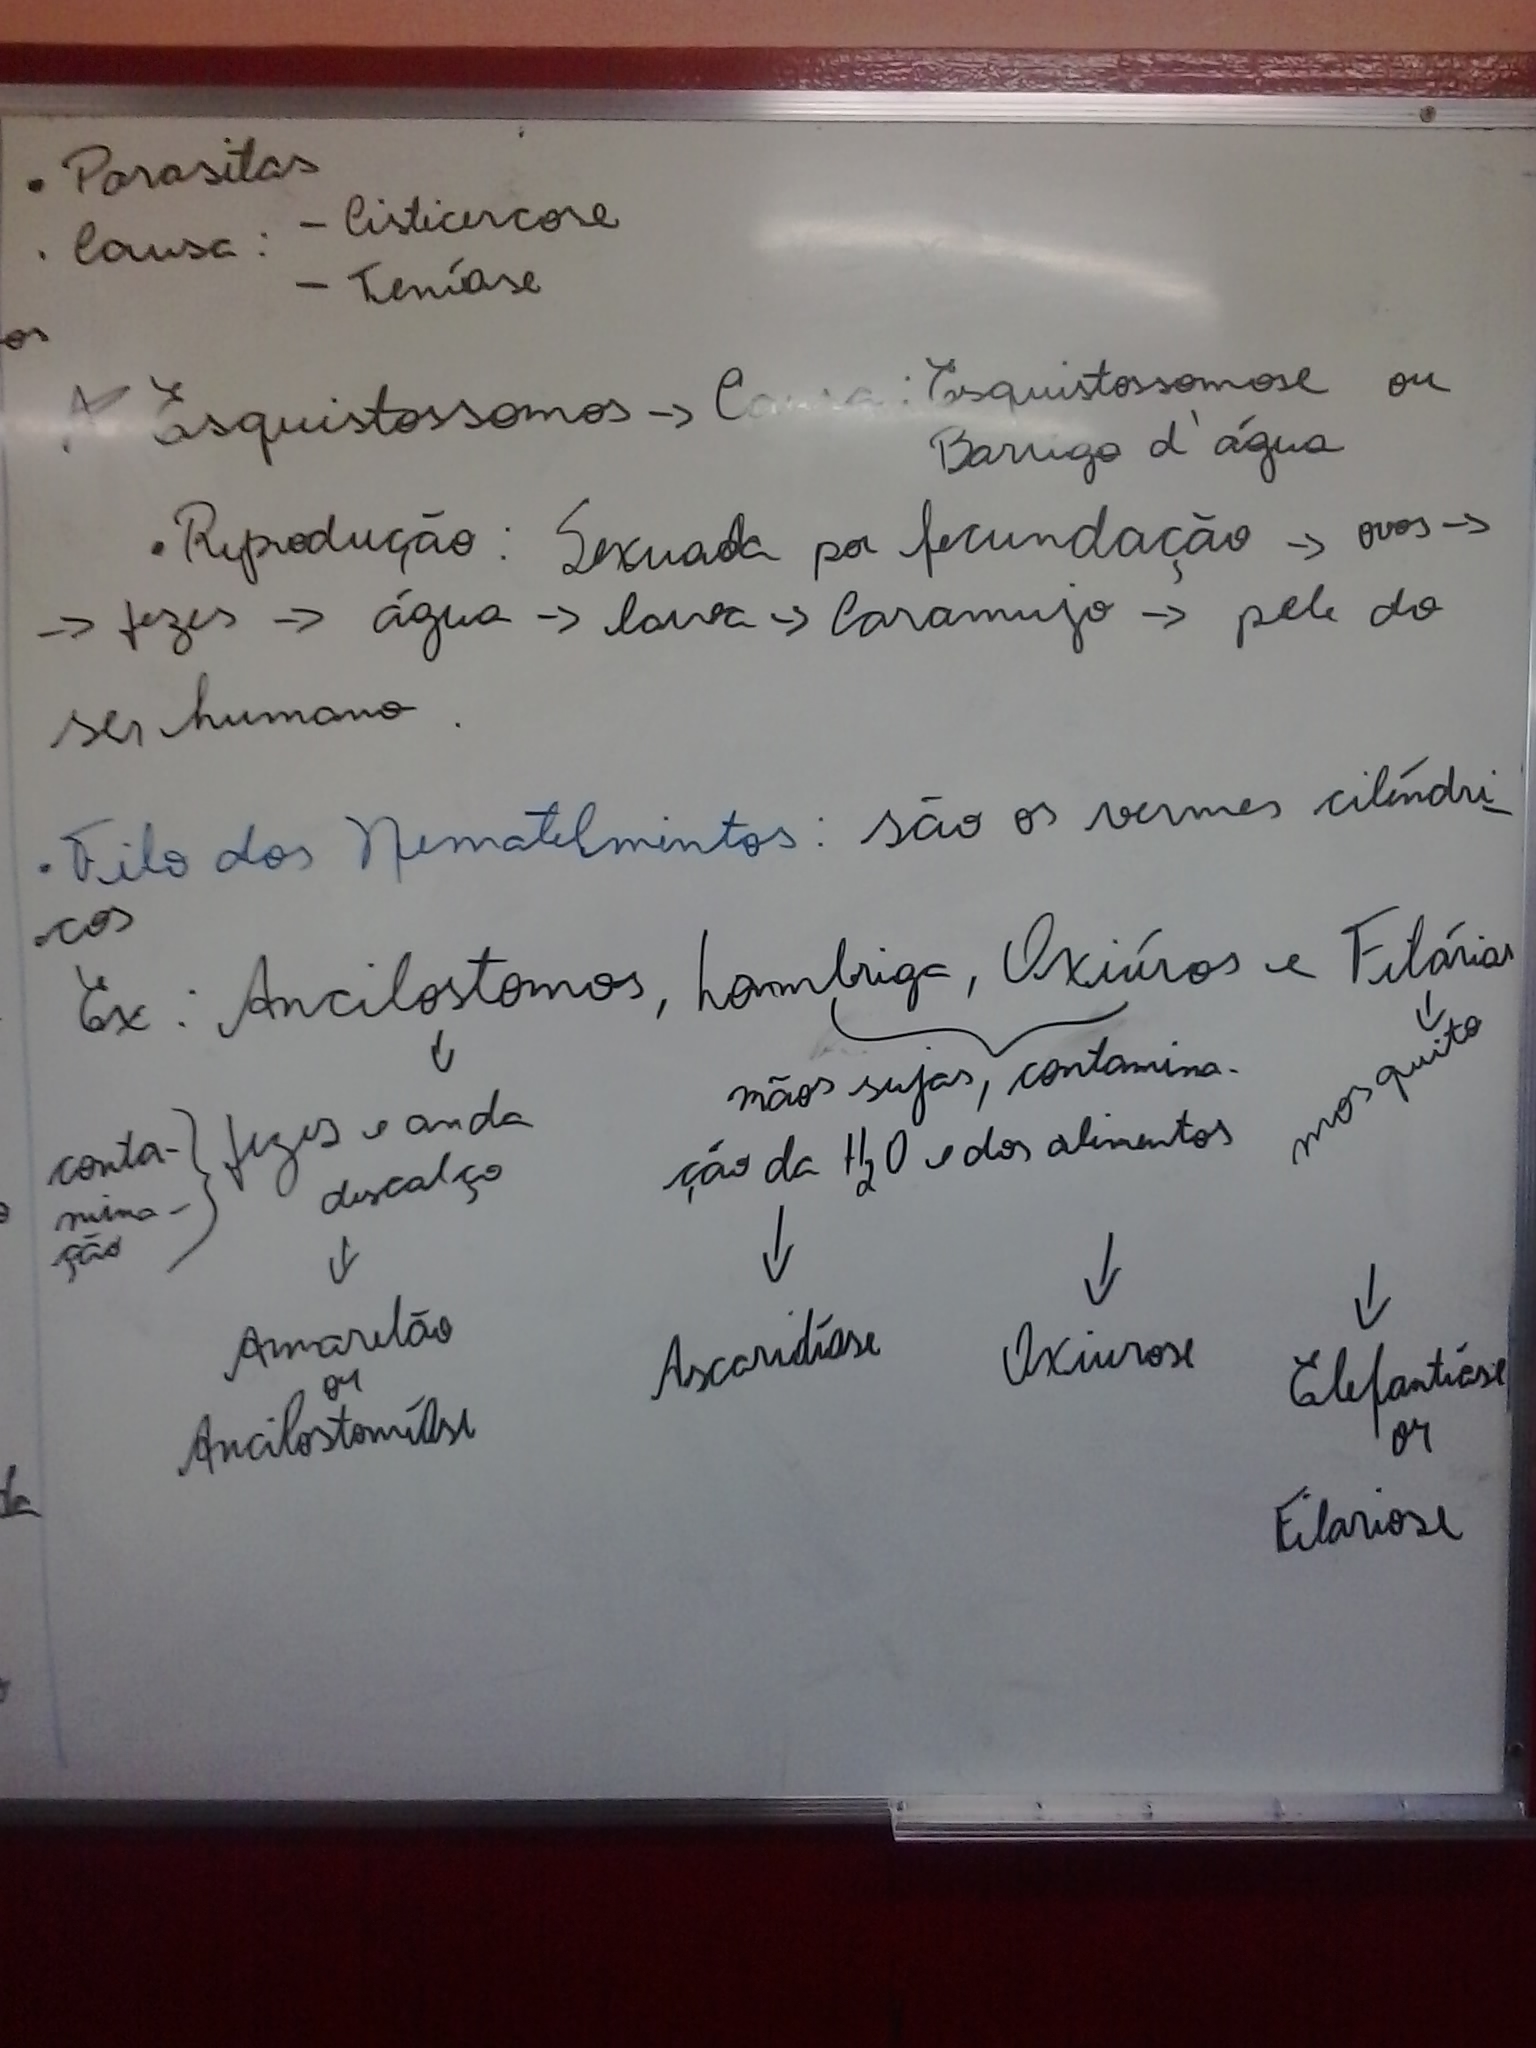 • Parasitas
• Causa: - Cisticercose
- Teníase
os
Esquistossomos -> Causa: Esquistossomose ou
Barriga d'água
• Reprodução: Sexuada por fecundação -> ovos ->
-> fezes -> água -> larva -> Caramujo -> pele do
ser humano.
• Filo dos Nematelmintos: são os vermes cilíndri-
cos
Ex: Ancilostomos, Lombriga, Oxiúros e Filárias
mãos sujas, contamina-
ção da H2O e dos alimentos
mosquito
conta-
mina-
ção
fezes e anda
descalço
Amarelão
ou
Ancilostomíase
Ascaridíase
Oxiurose
Elefantíase
ou
Filariose
da